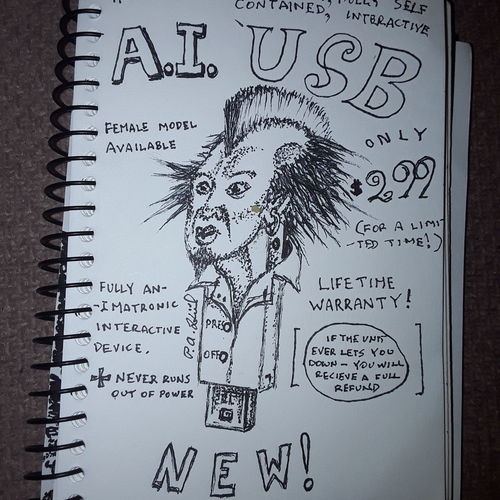 FULLY SELF
CONTAINED, INTERACTIVE
A.I. USB
FEMALE MODEL
AVAILABLE
ONLY
$2.99
(FOR A LIMI-
-TED TIME!)
FULLY AN-
-IMATRONIC
INTERACTIVE
DEVICE.
+ NEVER RUNS
OUT OF POWER
PRE
OFF
LIFETIME
WARRANTY!
IF THE UNIT
EVER LETS YOU
DOWN - YOU WILL
RECIEVE A FULL
REFUND
NEW!